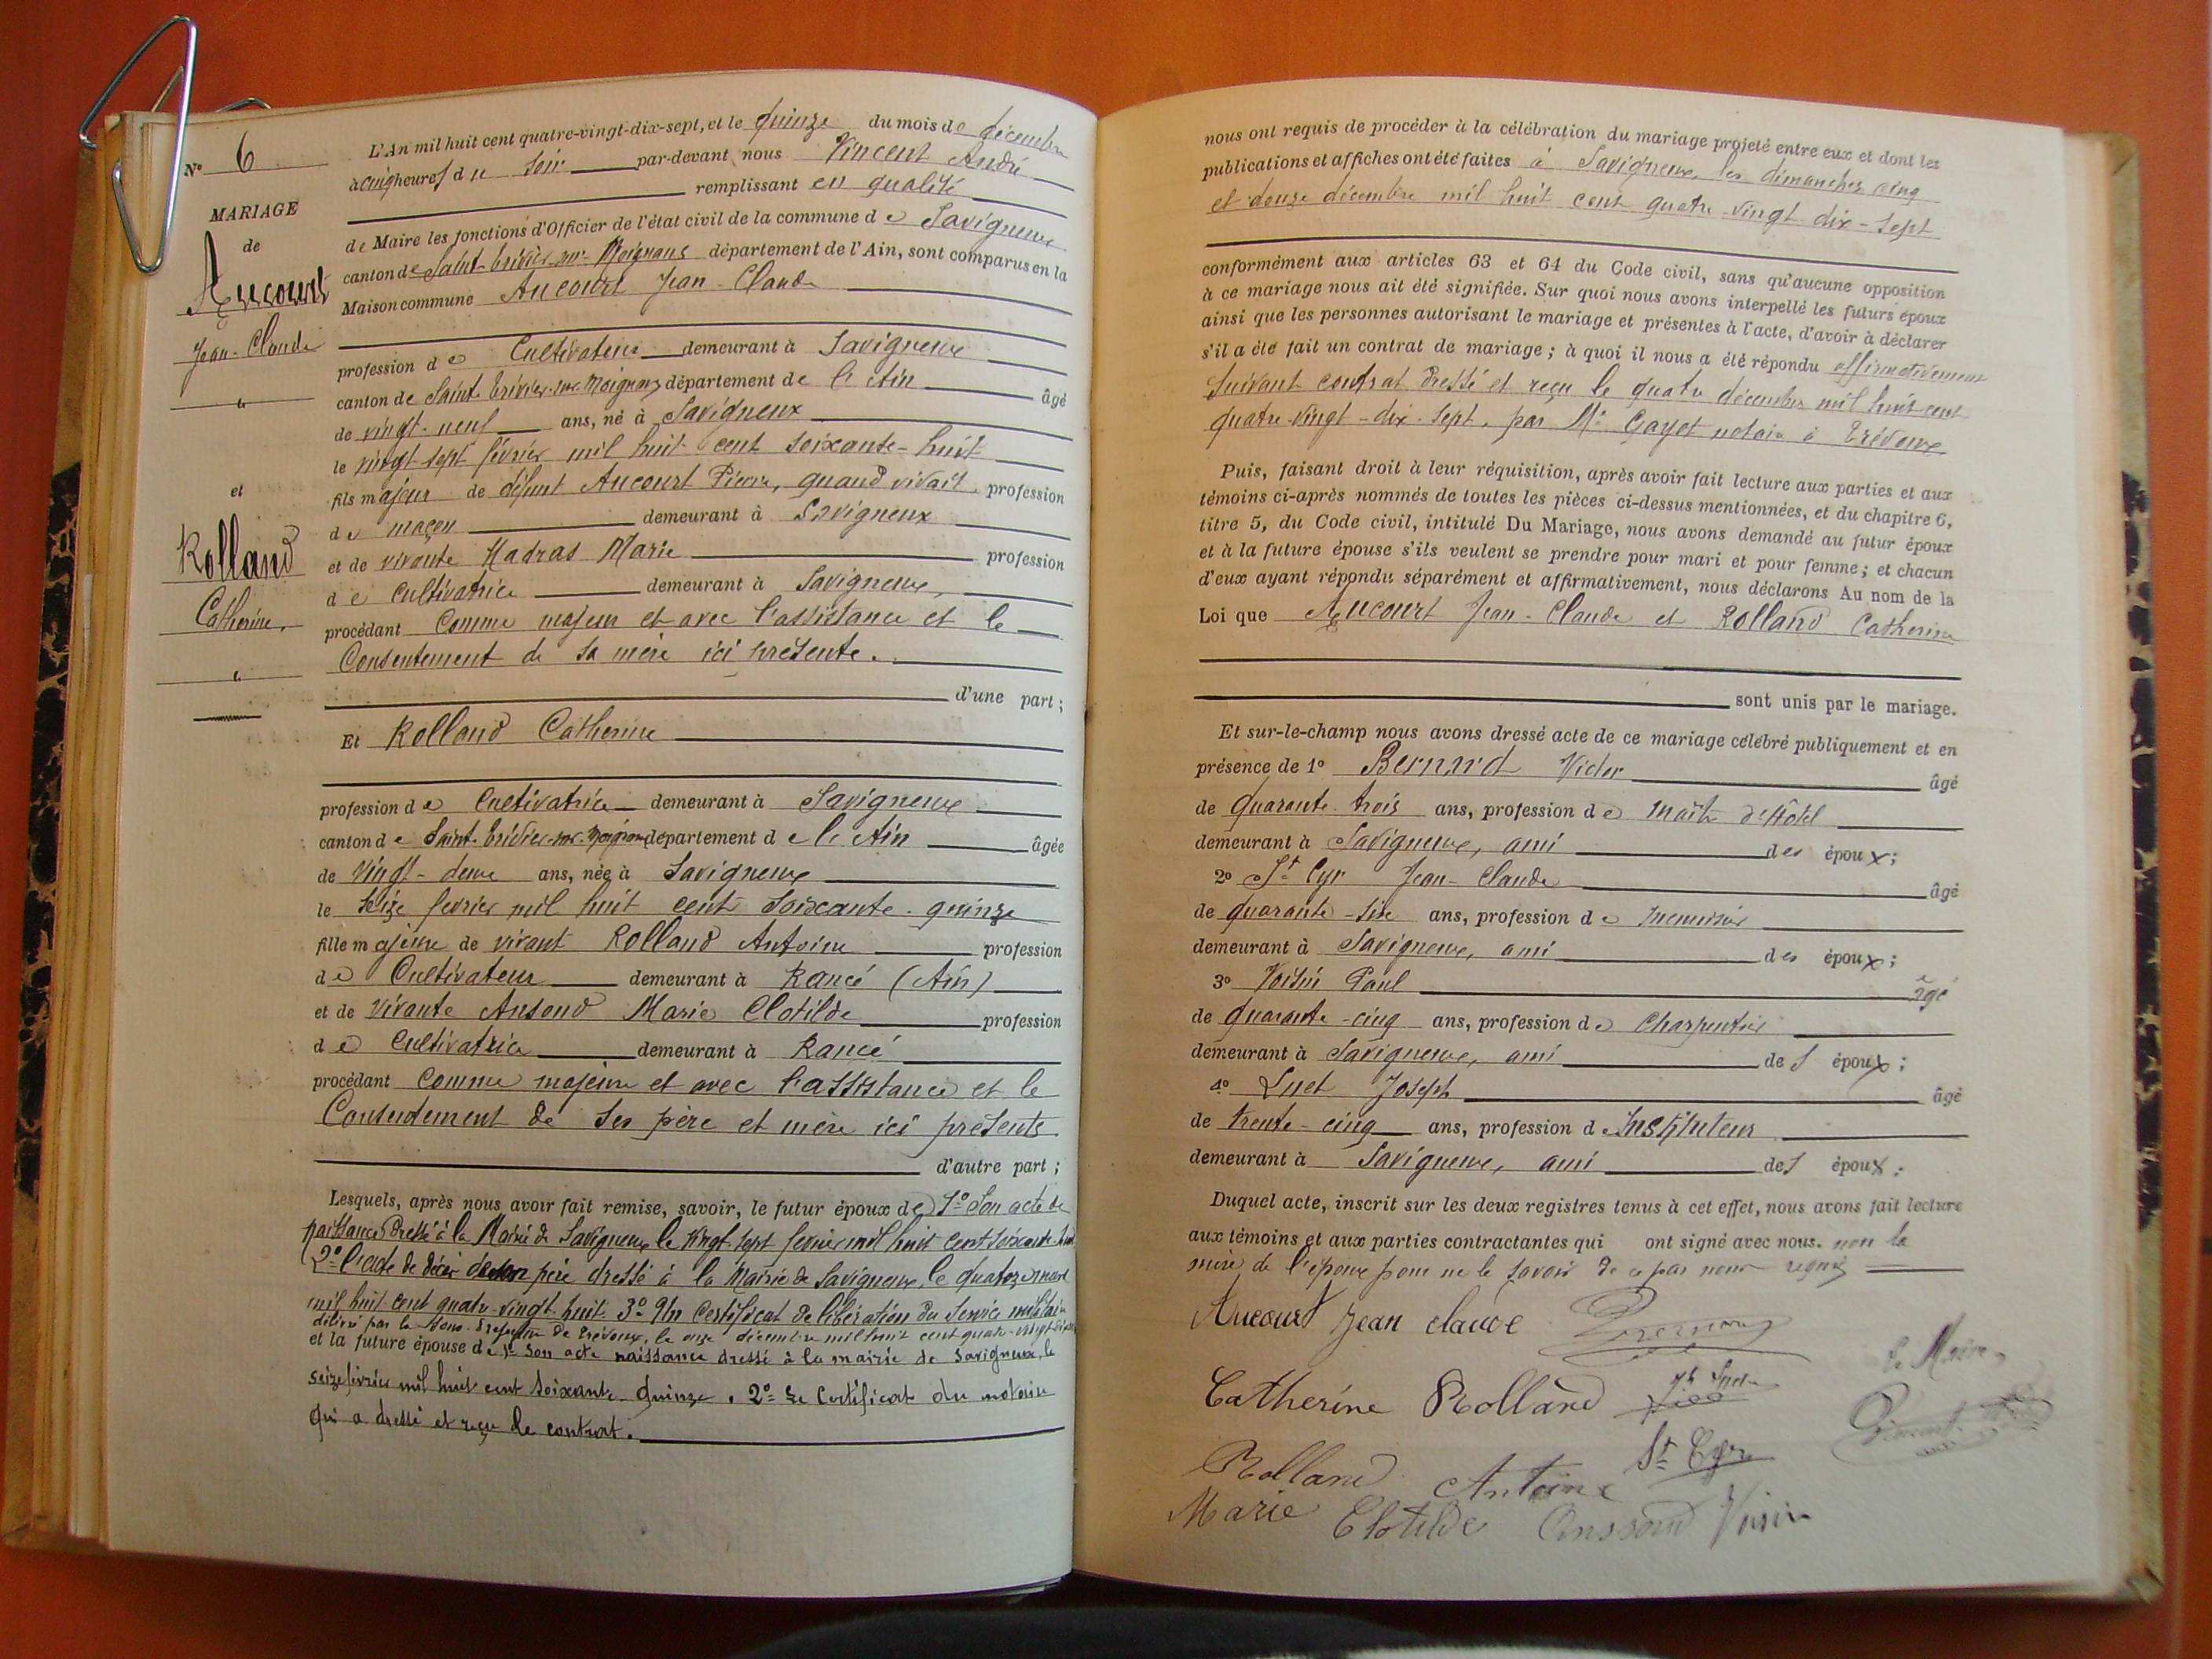 N° 6
MARIAGE
de
Aucourt
Jean-Claude
et
Rolland
Catherine,
L'An mil huit cent quatre-vingt-dix-sept, et le quinze du mois de décembre
à cinq heures du soir par-devant nous Vincent André
remplissant en qualité
de Maire les fonctions d'Officier de l'état civil de la commune de Savigneux
canton de Saint-Trivier-sur-Moignans département de l'Ain, sont comparus en la
Maison commune Aucourt Jean-Claude
profession de Cultivateur demeurant à Savigneux
canton de Saint-Trivier-sur-Moignans département de l'Ain âgé
de vingt-neuf ans, né à Savigneux
le vingt-sept février mil huit cent soixante-huit
fils majeur de défunt Aucourt Pierre, quand vivait, profession
de maçon demeurant à Savigneux
et de vivante Madras Marie profession
de Cultivatrice demeurant à Savigneux,
procédant comme majeur et avec l'assistance et le
Consentement de sa mère ici présente.
d'une part ;
Et Rolland Catherine
profession de Cultivatrice demeurant à Savigneux
canton de Saint-Trivier-sur-Moignans département de l'Ain âgée
de vingt-deux ans, née à Savigneux
le seize février mil huit cent soixante-quinze
fille majeure de vivant Rolland Antoine profession
de Cultivateur demeurant à Rancé (Ain)
et de vivante Ansoud Marie Clotilde profession
de Cultivatrice demeurant à Rancé
procédant comme majeure et avec l'assistance et le
Consentement de ses père et mère ici présents
d'autre part ;
Lesquels, après nous avoir fait remise, savoir, le futur époux de 1° Son acte de
naissance dressé à la Mairie de Savigneux le vingt-sept février mil huit cent soixante-huit
2° l'acte de décès de son père dressé à la Mairie de Savigneux, le quatorze mars
mil huit cent quatre-vingt-huit. 3° Un Certificat de libération du Service militaire
délivré par la Sous-Préfecture de Trévoux, le onze décembre mil huit cent quatre-vingt-dix-sept
et la future épouse de 1° son acte naissance dressé à la mairie de Savigneux, le
seize février mil huit cent soixante-quinze. 2° Le Certificat du notaire
qui a dressé et reçu le contrat.
nous ont requis de procéder à la célébration du mariage projeté entre eux et dont les
publications et affiches ont été faites à Savigneux, les dimanches cinq
et douze décembre mil huit cent quatre-vingt dix-sept
conformément aux articles 63 et 64 du Code civil, sans qu'aucune opposition
à ce mariage nous ait été signifiée. Sur quoi nous avons interpellé les futurs époux
ainsi que les personnes autorisant le mariage et présentes à l'acte, d'avoir à déclarer
s'il a été fait un contrat de mariage ; à quoi il nous a été répondu affirmativement
suivant contrat dressé et reçu le quatre décembre mil huit cent
quatre-vingt-dix-sept, par Me Gayet notaire à Trévoux
Puis, faisant droit à leur réquisition, après avoir fait lecture aux parties et aux
témoins ci-après nommés de toutes les pièces ci-dessus mentionnées, et du chapitre 6,
titre 5, du Code civil, intitulé Du Mariage, nous avons demandé au futur époux
et à la future épouse s'ils veulent se prendre pour mari et pour femme ; et chacun
d'eux ayant répondu séparément et affirmativement, nous déclarons Au nom de la
Loi que Aucourt Jean-Claude et Rolland Catherine
sont unis par le mariage.
Et sur-le-champ nous avons dressé acte de ce mariage célébré publiquement et en
présence de 1° Bernard Victor âgé
de quarante-trois ans, profession de Maître d'Hôtel
demeurant à Savigneux, ami des époux ;
2° St Cyr Jean-Claude âgé
de quarante-six ans, profession de menuisier
demeurant à Savigneux, ami des époux ;
3° Voisin Paul âgé
de quarante-cinq ans, profession de Charpentier
demeurant à Savigneux, ami des époux ;
4° Luet Joseph âgé
de trente-cinq ans, profession de Instituteur
demeurant à Savigneux, ami des époux ;
Duquel acte, inscrit sur les deux registres tenus à cet effet, nous avons fait lecture
aux témoins et aux parties contractantes qui ont signé avec nous. non la
mère de l'époux pour ne le savoir de ce par nous requis
Aucourt Jean claude
Catherine Rolland
Le Maire
St Cyr
Rolland Antoine
Marie Clotilde Anssoud Voisin